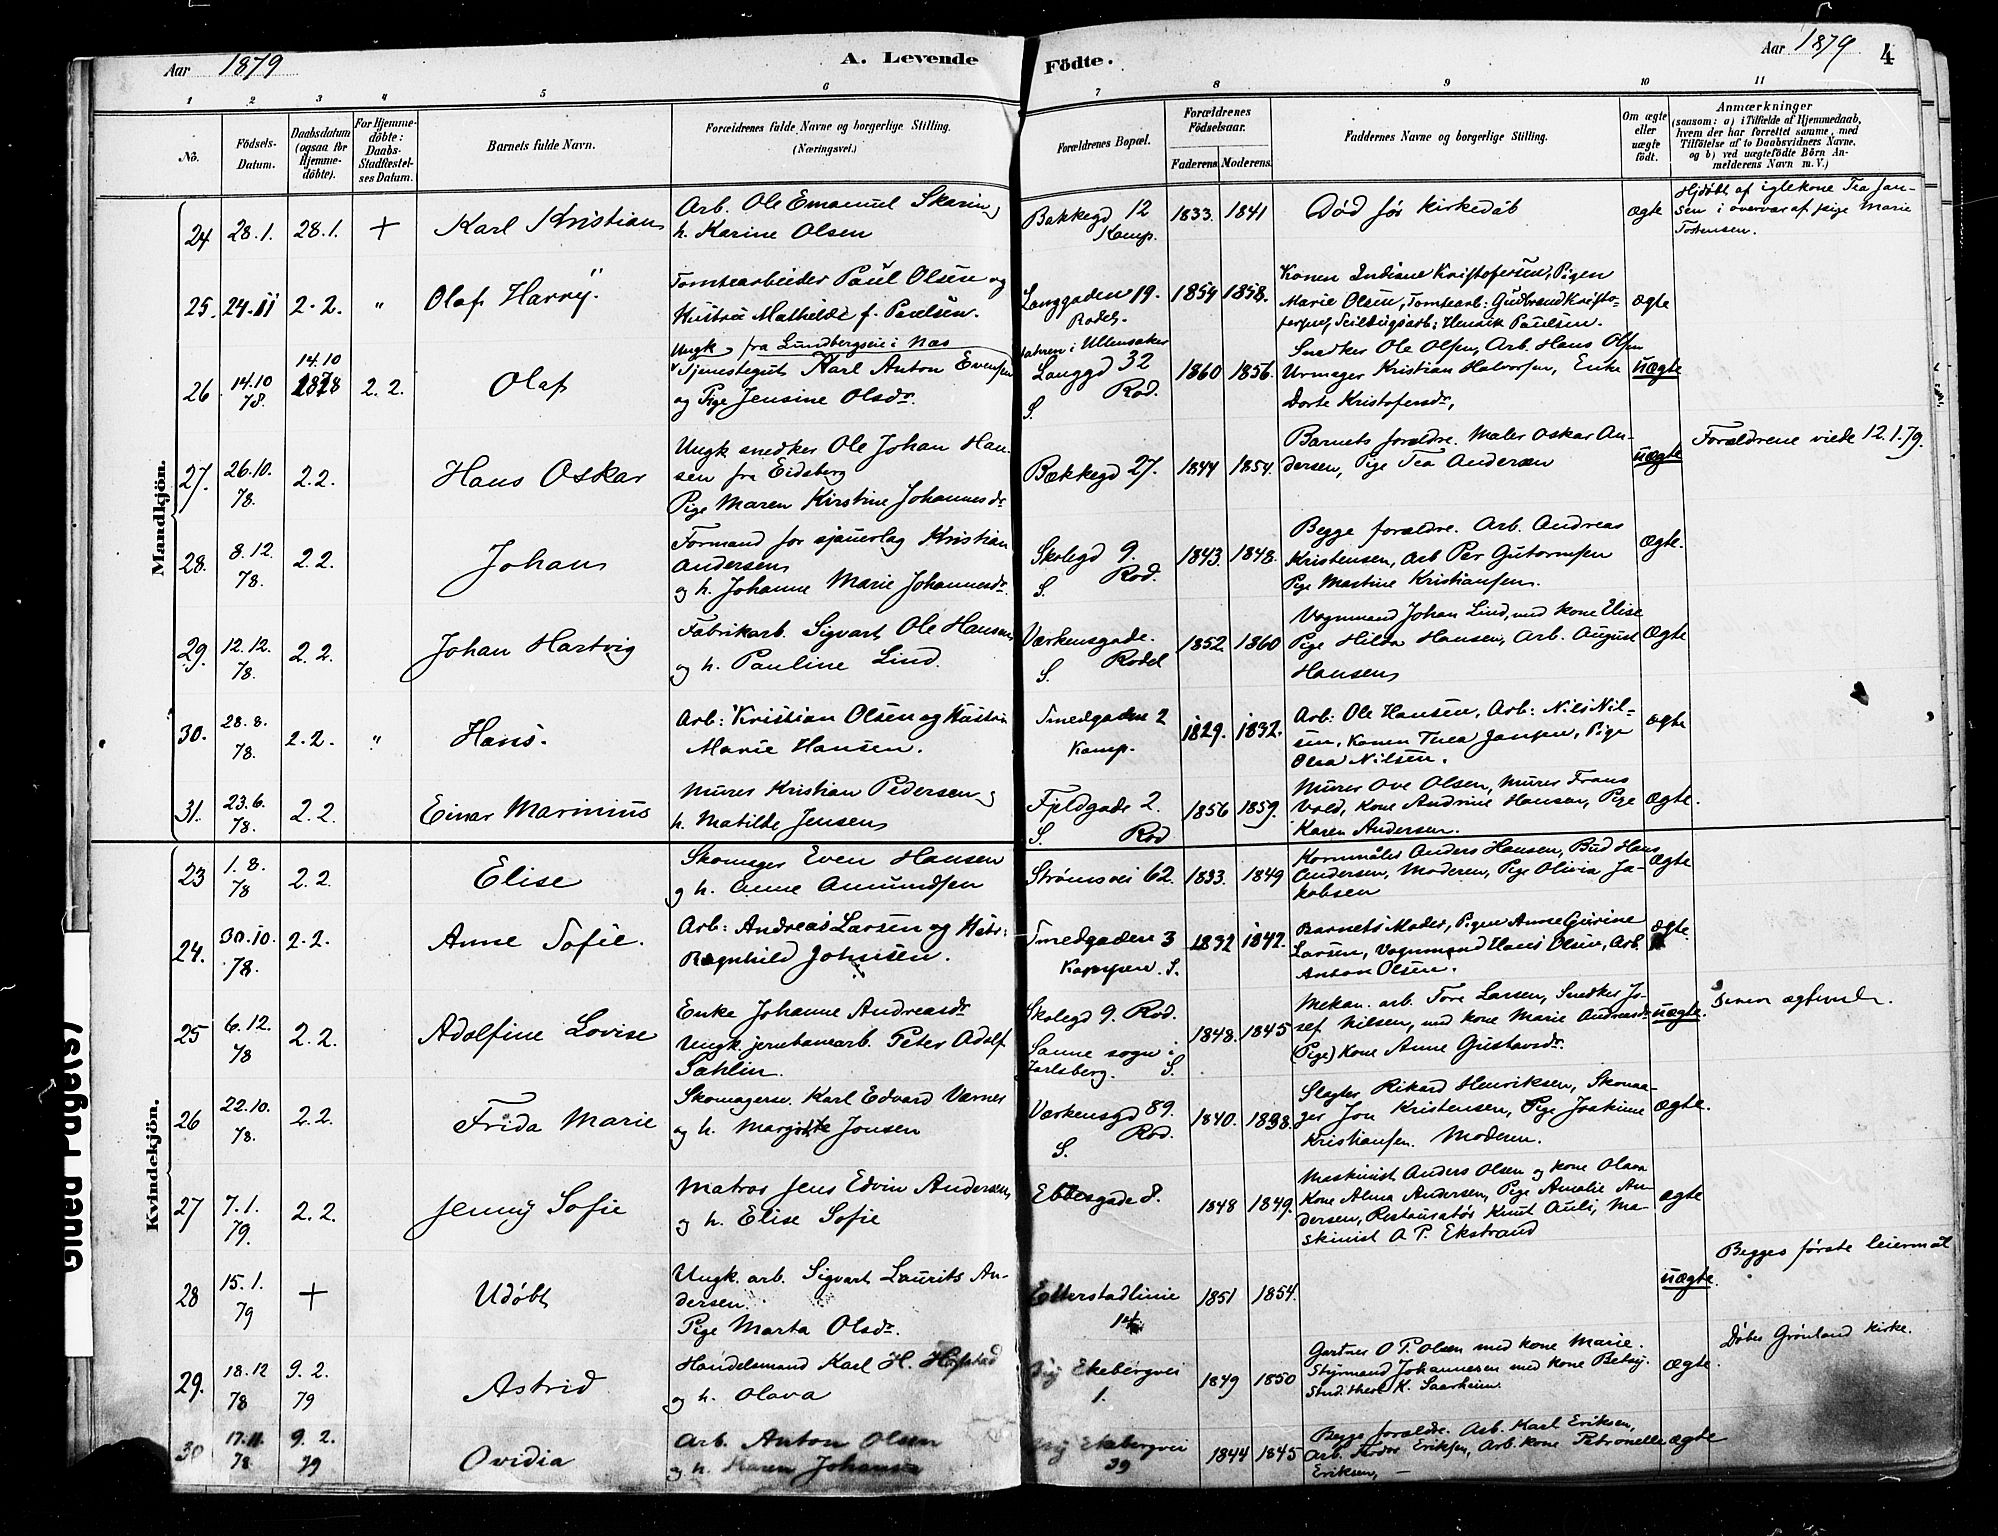 Aar 1879
A. Levende
Fødte.
Aar 1879
4
1
2
3
4
5
6
7
8
9
10
11
No.
Födsels-
Datum.
Daabsdatum
(ogsaa for
Hjemme-
döbte).
For Hjemme-
döbte:
Daabs-
Stadfæstel-
ses Datum.
Barnets fulde Navn.
Forældrenes fulde Navne og borgerlige Stilling.
(Næringsvei.)
Forældrenes Bopæl.
Forældrenes
Födselsaar.
Faderens. Moderens.
Faddernes Navne og borgerlige Stilling.
Om ægte
eller
uægte
født.
Anmærkninger
(saasom: a) i Tilfælde af Hjemmedaab,
hvem der har forrettet samme, med
Tilföielse af to Daabsvidners Navne,
og b) ved uægtefödte Börn An-
melderens Navn m. V.)
Mandkjön.
24
28.1.
28.1.
+
Karl Kristian
Arb. Ole Emanuel Skering
h. Karine Olsen
Bakkegd 12
Kamp.
1833. 1841
Død før kirkedåb
ægte
Hjdøbt af iglekone Tea Jan-
sen i overvær af pige Marie
Torstensen.
25.
24.11
2.2.
"
Olaf Harry.
Tomtearbeider Paul Olsen og
Hustru Mathilde f. Paulsen.
Langgaden 19.
Rodel.
1854 1858.
Konen Indiane Kristofersen, Pigen
Marie Olsen, Tomtearb: Gudbrand Kristo-
fersen, Seildugsarb: Henrik Paulsen.
ægte
26
14.10
78.
14.10
1878
2.2.
Olaf
Ungk fra Lundbergseie i Næs
Tjenestegut Karl Anton Evensen
og Pige Jensine Olsdr.
Jahren i Ullensaker
Langgd 32
Rod.
S.
1860 1856.
Snedker Ole Olsen, Arb. Hans Olsen
Urmager Kristian Halvorsen, Enke
Dorte Kristofersdr,
uægte
27.
26.10.
78.
2.2.
Hans Oskar
Ungk snedker Ole Johan Han-
sen fra Eidsberg
Pige Maren Kirstine Johannesdr
Bækkegd 27.
1844 1854.
Barnets forældre. Maler Oskar An-
dersen, Pige Tea Andersen
uægte
Forældrene viede 12.1.79.
28.
8.12.
78.
2.2.
Johan
Formand for sjauerlag Kristian
Andersen
og h. Johanne Marie Johannesdr.
Skolegd 9.
S. Rod.
1843. 1848.
Begge forældre. Arb. Andreas
Kristensen, Arb Per Gutormsen
Pige Mastine Kristiansen.
ægte.
29.
12.12.
78.
2.2.
Johan Hartvig
Fabrikarb. Sigvart Ole Hansen
og h. Pauline Lind.
Værkensgade.
S. Rodel
1852 1860
Vognmand Johan Lind, med kone Elise
Pige Hilda Hansen, Arb. August
Hansen
ægte
30.
28.8.
78.
2.2.
"
Hans.
Arb: Kristian Olsen og Hustru
Marie Hansen.
Smedgaden 2
Kamp.
1829. 1832.
Arb: Ole Hansen, Arb: Nils Nil-
sen, Konen Thea Jansen, Pige
Olea Nilsen.
ægte
31.
23.6.
78.
2.2.
Einar Marinius
Murer Kristian Pedersen og
h. Matilde Jensen
Fjeldgade 2.
S. Rod
1856 1859.
Murer Ove Olsen, Murer Frans
Vold, Kone Andrine Hansen, Pige
Karen Andersen.
ægte.
Kvindekjön.
23
1.8.
78
2.2.
Elise
Skomager Even Hansen
og h. Anne Amundsen
Strømsvei 62.
1833. 1849
Kornmåler Anders Hansen, Bud Hans
Andersen, Moderen, Pige Olivia Ja-
kobsen
ægte
24.
30.10.
78.
2.2.
Anne Sofie.
Arb: Andreas Larsen og Hustr:
Ragnhild Johnsen.
Smedgaden 3
Kampen. S.
1832 1842.
Barnets Moder, Pigen Anne Gurine
Larsen, Vognmand Hans Olsen, Arb.
Anton Olsen.
ægte.
25
6.12.
78
2.2.
Adolfine Lovise
Enke Johanne Andreasdr
Ungk. jernbanearb. Peter Adolf
Sahlin.
Skolegd 9. Rod.
Sanne sogn i
Jarlsberg. S.
1848. 1845
Mekan. arb. Tore Larsen, Snedker Jo-
sef Nilsen, med kone Marie Andreasdr
(Pige) Kone Anne Gustavsdr.
uægte.
26
22.10.
78.
2.2.
Frida Marie
Skomagersv. Karl Edvard Værner
og h. Margitte Jonsen
Værkensgd 89.
S. Rod.
1840. 1838.
Slagter Rikard Henriksen, Skomaa-
ger Jon Kristensen, Pige Joakime
Kristiansen. Moderen.
ægte.
27
7.1.
79.
2.2.
Jenny Sofie
Matros Jens Edvin Andersen,
og h. Elise Sofie
Ebbesgade 8.
1848 1849.
Maskinist Anders Olsen og kone Olava
Kone Alma Andersen, Pige Amalie An-
dersen, Restauratør Knut Auli, Ma-
skinist A P. Ekstrand
ægte
28
15.1.
79
+
Udøbt
Ungk. arb. Sigvart Laurits An-
dersen.
Pige Marta Olsdr.
Etterstadlinie
14
1851 1854.
uægte.
Begges første leiermål
29.
18.12
78
9.2.
79
Astrid
Handelsmand Karl H. Hofstad
og h. Olava
Ny Ekebergvei
1.
1849 1850
Gartner O P. Olsen med kone Marie.
Styrmand Johannesen med kone Betsy.
Stud. theol K. Saarheim.
ægte.
Døbt Grønland kirke.
30
17.11.
78
9.2.
79
Ovidia
Arb. Anton Olsen
og h. Karen Johansen
Ny Ekebergvei
39
1844 1845
Begge forældre. Arb. Karl Eriksen,
Arb. Teodor Eriksen, Arb. kone Petronelle
Eriksen, —
ægte